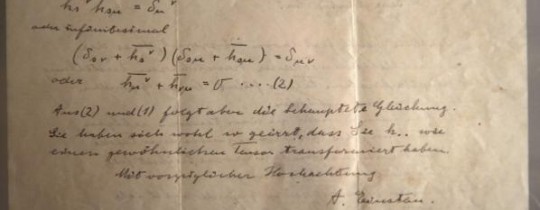 h_s^ν h_{sμ} = δ_μ^ν
oder infinitesimal
(δ_{sν} + h̄_s^ν)(δ_{sμ} + h̄_{sμ}) = δ_{μν}
oder h̄_μ^ν + h̄_{νμ} = 0 ....(2)
Aus (2) und (1) folgt aber die behauptete Gleichung.
Sie haben sich wohl so geirrt, dass Sie h.. wie
einen gewöhnlichen Tensor transformiert haben.
Mit vorzüglicher Hochachtung
A. Einstein.